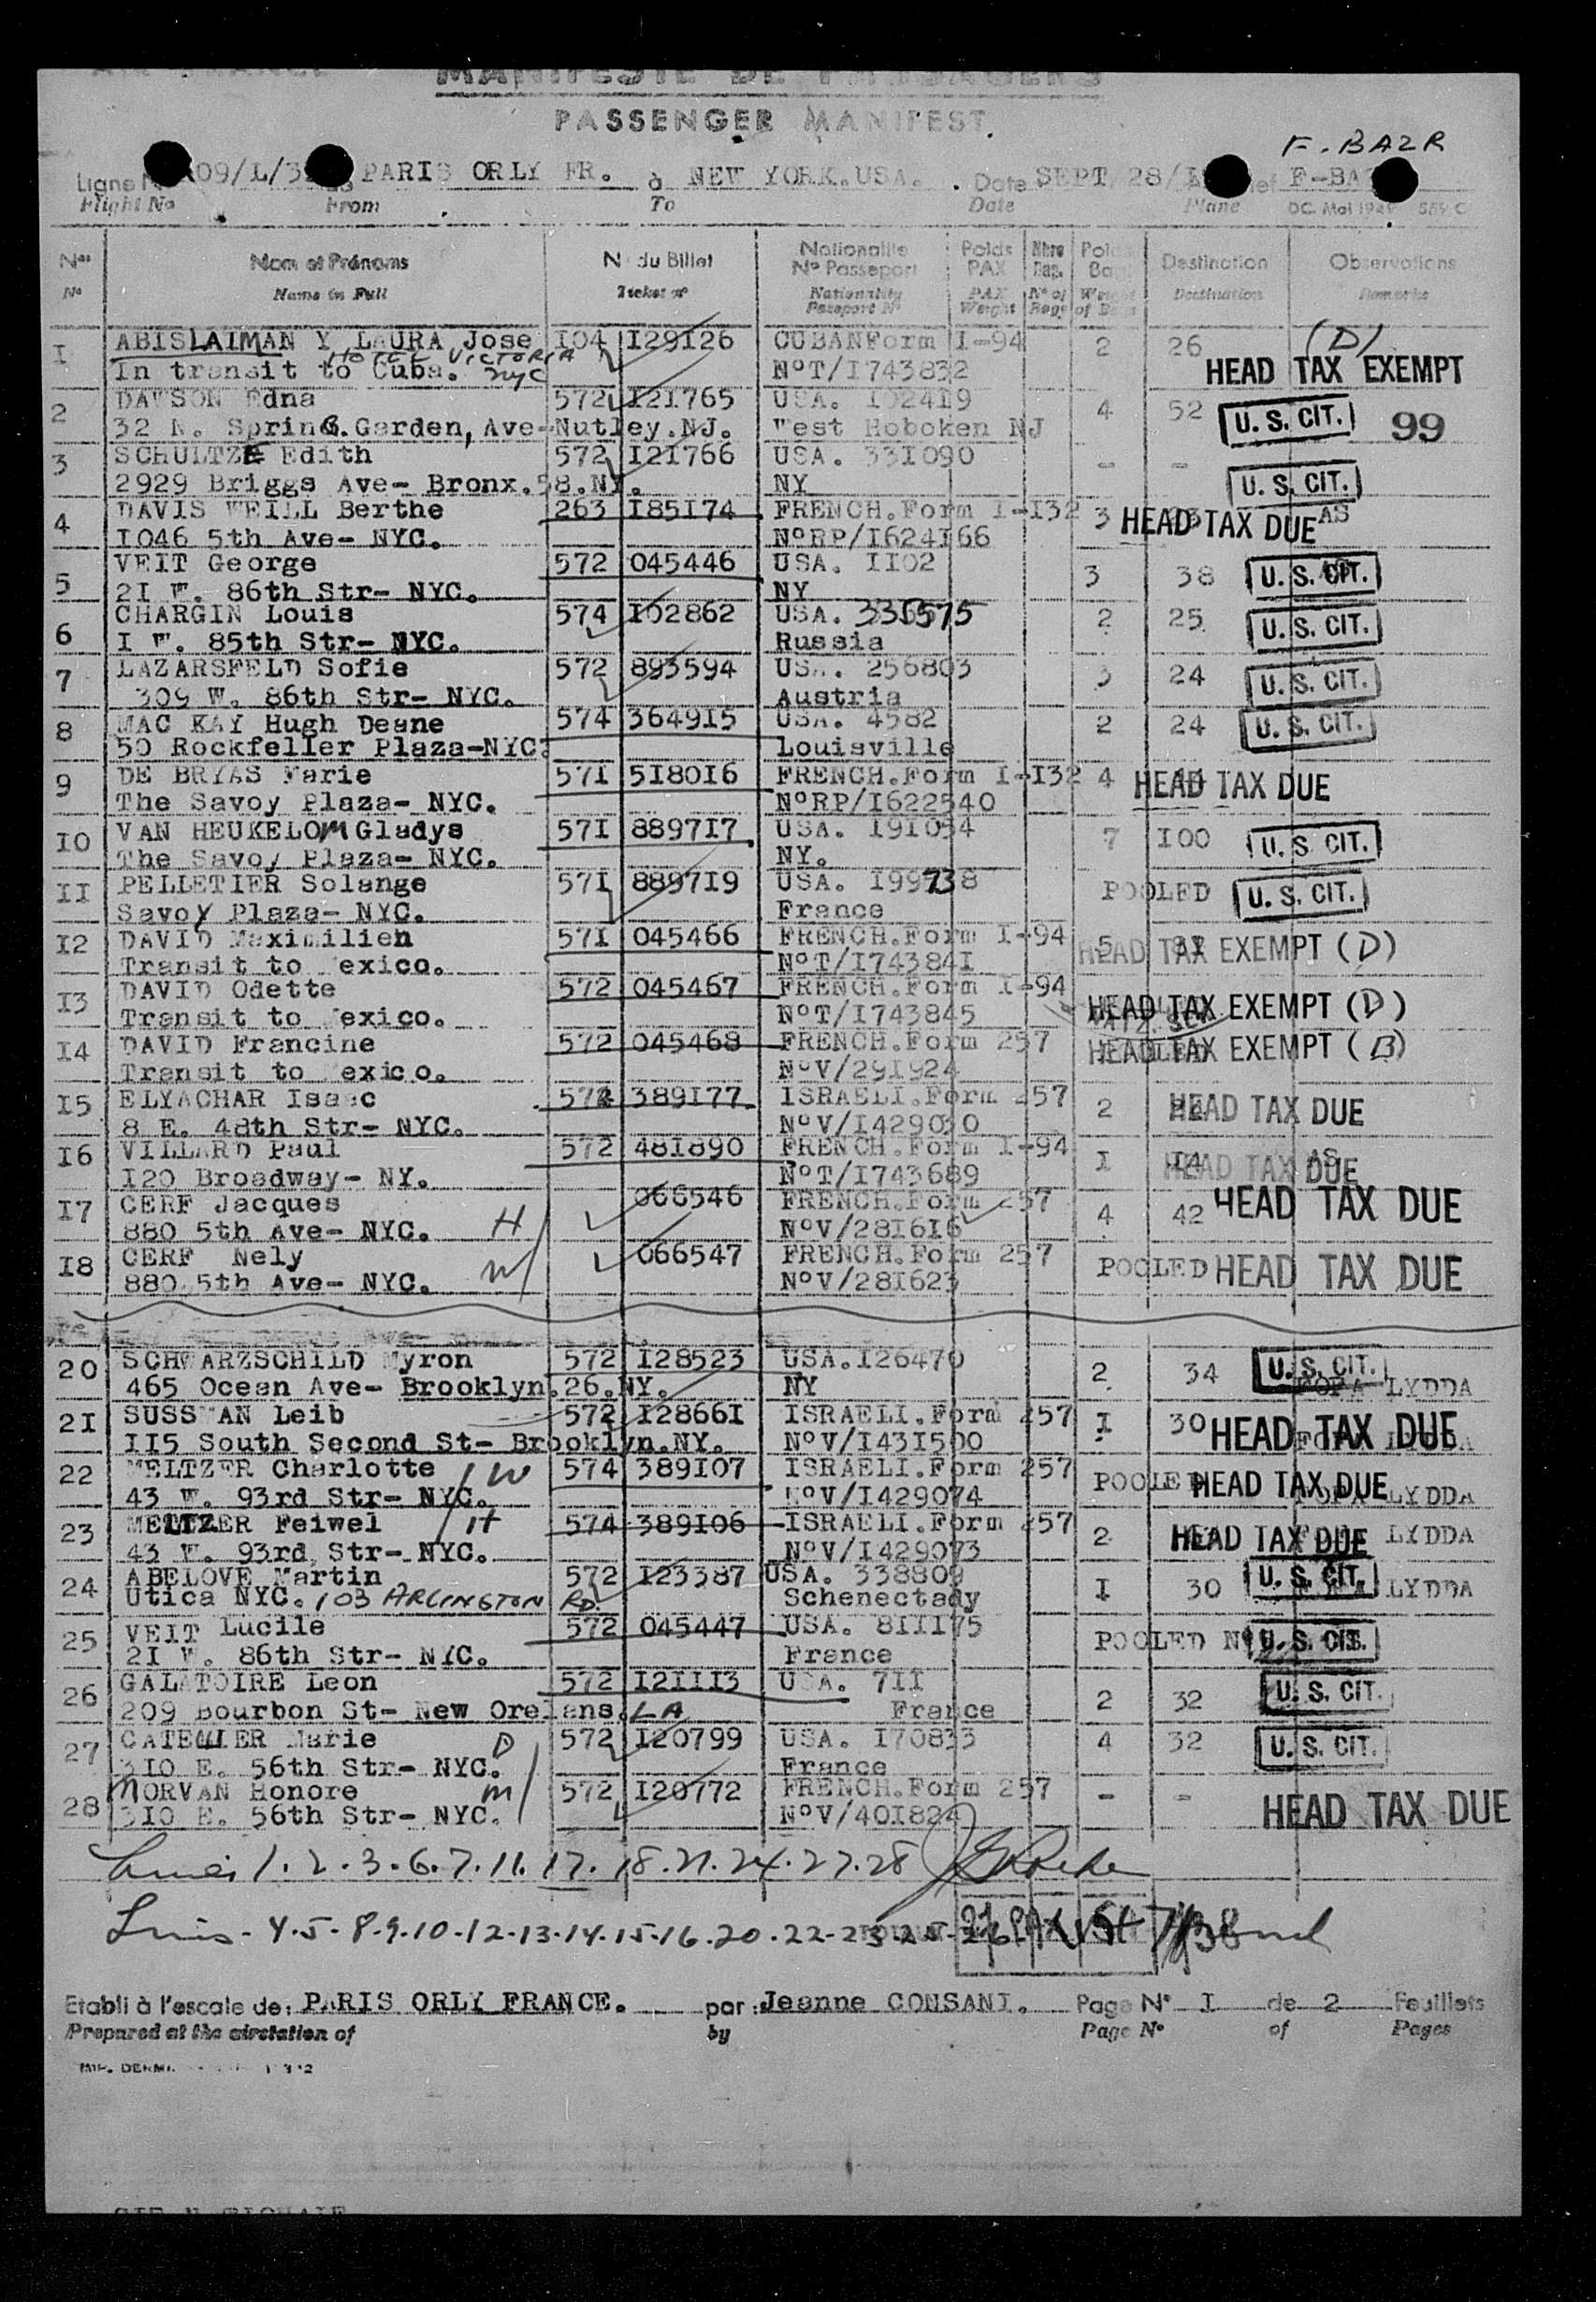 MANIFESTE DE PASSAGERS
PASSENGER MANIFEST
F. BAZR
Ligne N 09/L/3 PARIS ORLY FR. à NEW YORK.USA. Date SEPT 28/ F-BA
Flight No From To Date Plane DC. Mai 194
Nos Nom et Prénoms N du Billet Nationalité Poids Nbre Poids Destination Observations
N° Passeport PAX Bag. Bag
No Name in Full Ticket no Nationality PAX No of Weight Destination Remarks
Passport No Weight Bags of Bags
1 ABISLAIMAN Y LAURA Jose 104 129126 CUBANForm I-94 2 26 (D)
HOTEL VICTORIA
In transit to Cuba. NYC N°T/1743832 HEAD TAX EXEMPT
2 DAWSON Edna 572 121765 USA. 102419 4 52 U. S. CIT. 99
32 N. SprinG.Garden,Ave-Nutley.NJ. West Hoboken NJ
3 SCHULTZE Edith 572 121766 USA. 331090 - - U. S. CIT.
2929 Briggs Ave- Bronx.58.NY. NY
4 DAVIS WEILL Berthe 263 185174 FRENCH.Form I-132 3 HEAD TAX DUE AS
1046 5th Ave- NYC. N°RP/1624166
5 VEIT George 572 045446 USA. 1102 3 38 U. S. CIT.
21 W. 86th Str- NYC. NY
6 CHARGIN Louis 574 102862 USA. 336575 2 25 U. S. CIT.
1 W. 85th Str- NYC. Russia
7 LAZARSFELD Sofie 572 893594 USA. 256803 3 24 U. S. CIT.
309 W. 86th Str- NYC. Austria
8 MAC KAY Hugh Deane 574 364915 USA. 4582 2 24 U. S. CIT.
50 Rockfeller Plaza-NYC. Louisville
9 DE BRYAS Marie 571 518016 FRENCH.Form I-132 4 HEAD TAX DUE
The Savoy Plaza- NYC. N°RP/1622540
10 VAN HEUKELOM Gladys 571 889717 USA. 191054 7 100 U. S. CIT.
The Savoy Plaza- NYC. NY.
11 PELLETIER Solange 571 889719 USA. 199738 POOLED U. S. CIT.
Savoy Plaza- NYC. France
12 DAVID Maximilien 571 045466 FRENCH.Form I-94 HEAD TAX EXEMPT (D)
Transit to Mexico. N°T/1743841
13 DAVID Odette 572 045467 FRENCH.Form I-94 HEAD TAX EXEMPT (D)
Transit to Mexico. N°T/1743845
14 DAVID Francine 572 045468 FRENCH.Form 257 HEAD TAX EXEMPT (B)
Transit to Mexico. N°V/291924
15 ELYACHAR Isaac 572 389177 ISRAELI.Form 257 2 HEAD TAX DUE
8 E. 48th Str- NYC. N°V/1429030
16 VILLARD Paul 572 481890 FRENCH.Form I-94 1 14 HEAD TAX DUE AS
120 Broadway- NY. N°T/1743689
17 CERF Jacques 066546 FRENCH.Form 257 4 42 HEAD TAX DUE
880 5th Ave- NYC. H N°V/281616
18 CERF Nely 066547 FRENCH.Form 257 POOLED HEAD TAX DUE
880.5th Ave- NYC. W N°V/281623
20 SCHWARZSCHILD Myron 572 128523 USA.126470 2 34 U. S. CIT.
465 Ocean Ave- Brooklyn.26.NY. NY LYDDA
21 SUSSMAN Leib 572 128661 ISRAELI.Form 257 1 30 HEAD TAX DUE
115 South Second St- Brooklyn.NY. N°V/1431500
22 MELTZER Charlotte W 574 389107 ISRAELI.Form 257 POOLED HEAD TAX DUE LYDDA
43 W. 93rd Str- NYC. N°V/1429074
23 MELTZER Feiwel H 574 389106 ISRAELI.Form 257 2 HEAD TAX DUE LYDDA
43 W. 93rd Str- NYC. N°V/1429073
24 ABELOVE Martin 572 123387 USA. 338809 1 30 U. S. CIT. LYDDA
Utica NYC. 103 ARLINGTON RD. Schenectady
25 VEIT Lucile 572 045447 USA. 811175 POOLED N° U. S. CIT.
21 W. 86th Str- NYC. France
26 GALATOIRE Leon 572 121113 USA. 711 2 32 U. S. CIT.
209 Bourbon St- New Orelans.LA France
27 CATEMIER Marie D 572 120799 USA. 170833 4 32 U. S. CIT.
310 E. 56th Str- NYC. France
28 MORVAN Honore M 572 120772 FRENCH.Form 257 - - HEAD TAX DUE
310 E. 56th Str- NYC. N°V/401824
Lines 1.2.3.6.7.11.17.18.21.24.27.28
Lines- 4.5-8.9.10-12-13.14.15-16.20.22-23-25-26
Etabli à l'escale de: PARIS ORLY FRANCE. par: Jeanne CONSANI. Page N° 1 de 2 Feuillets
Prepared at the airstation of by Page No of Pages